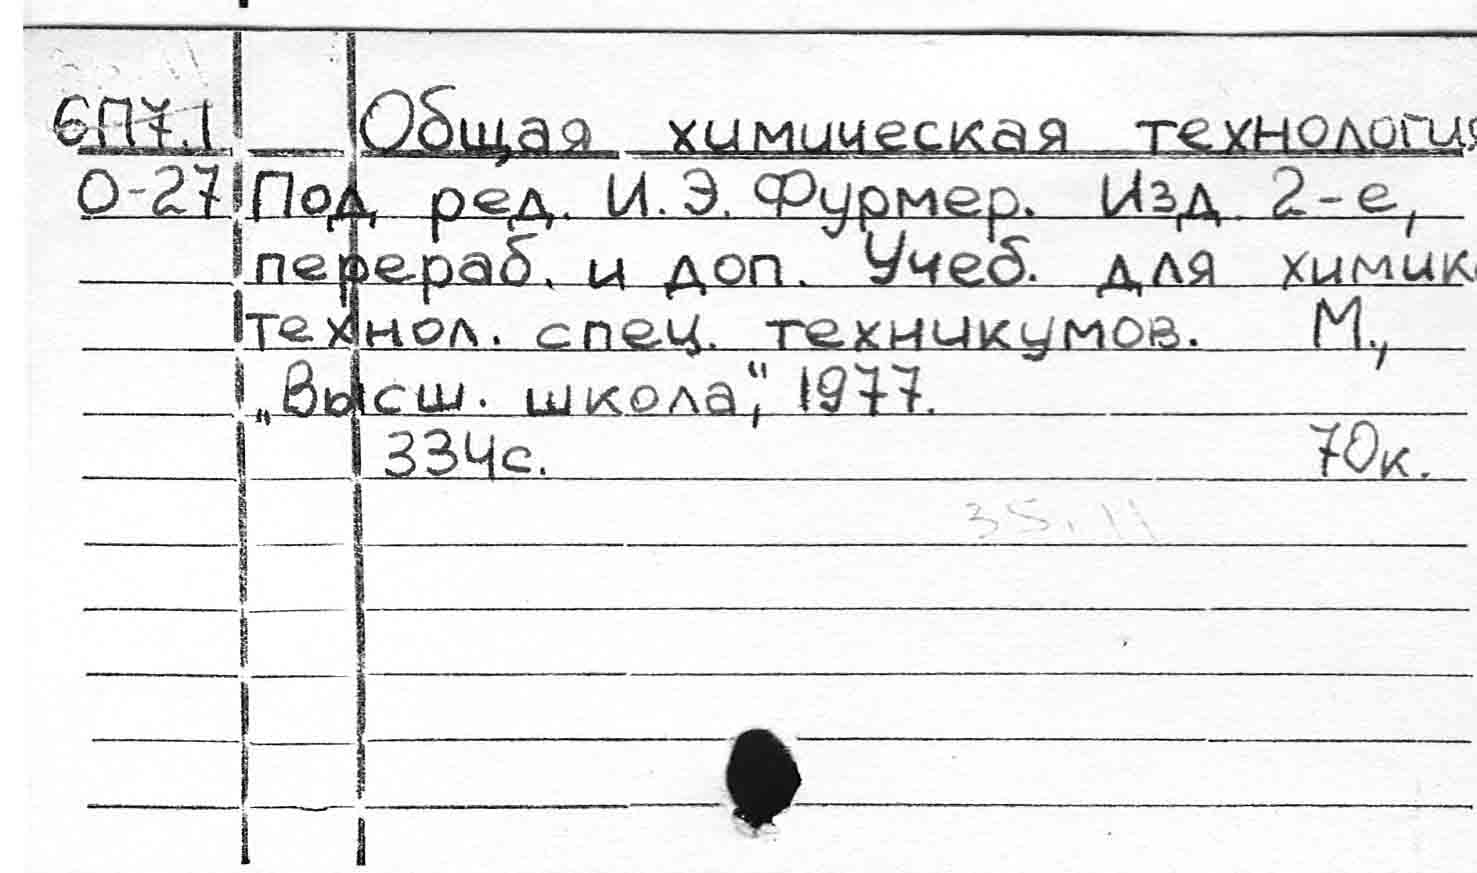 6П7.1 Общая химическая технология
О-27 Под ред. И.Э. Фурмер. Изд 2-е,
перераб. и доп. Учеб. для химик
технол. спец. техникумов. М.,
„Высш. школа“, 1977.
334с. 70к.
35.11